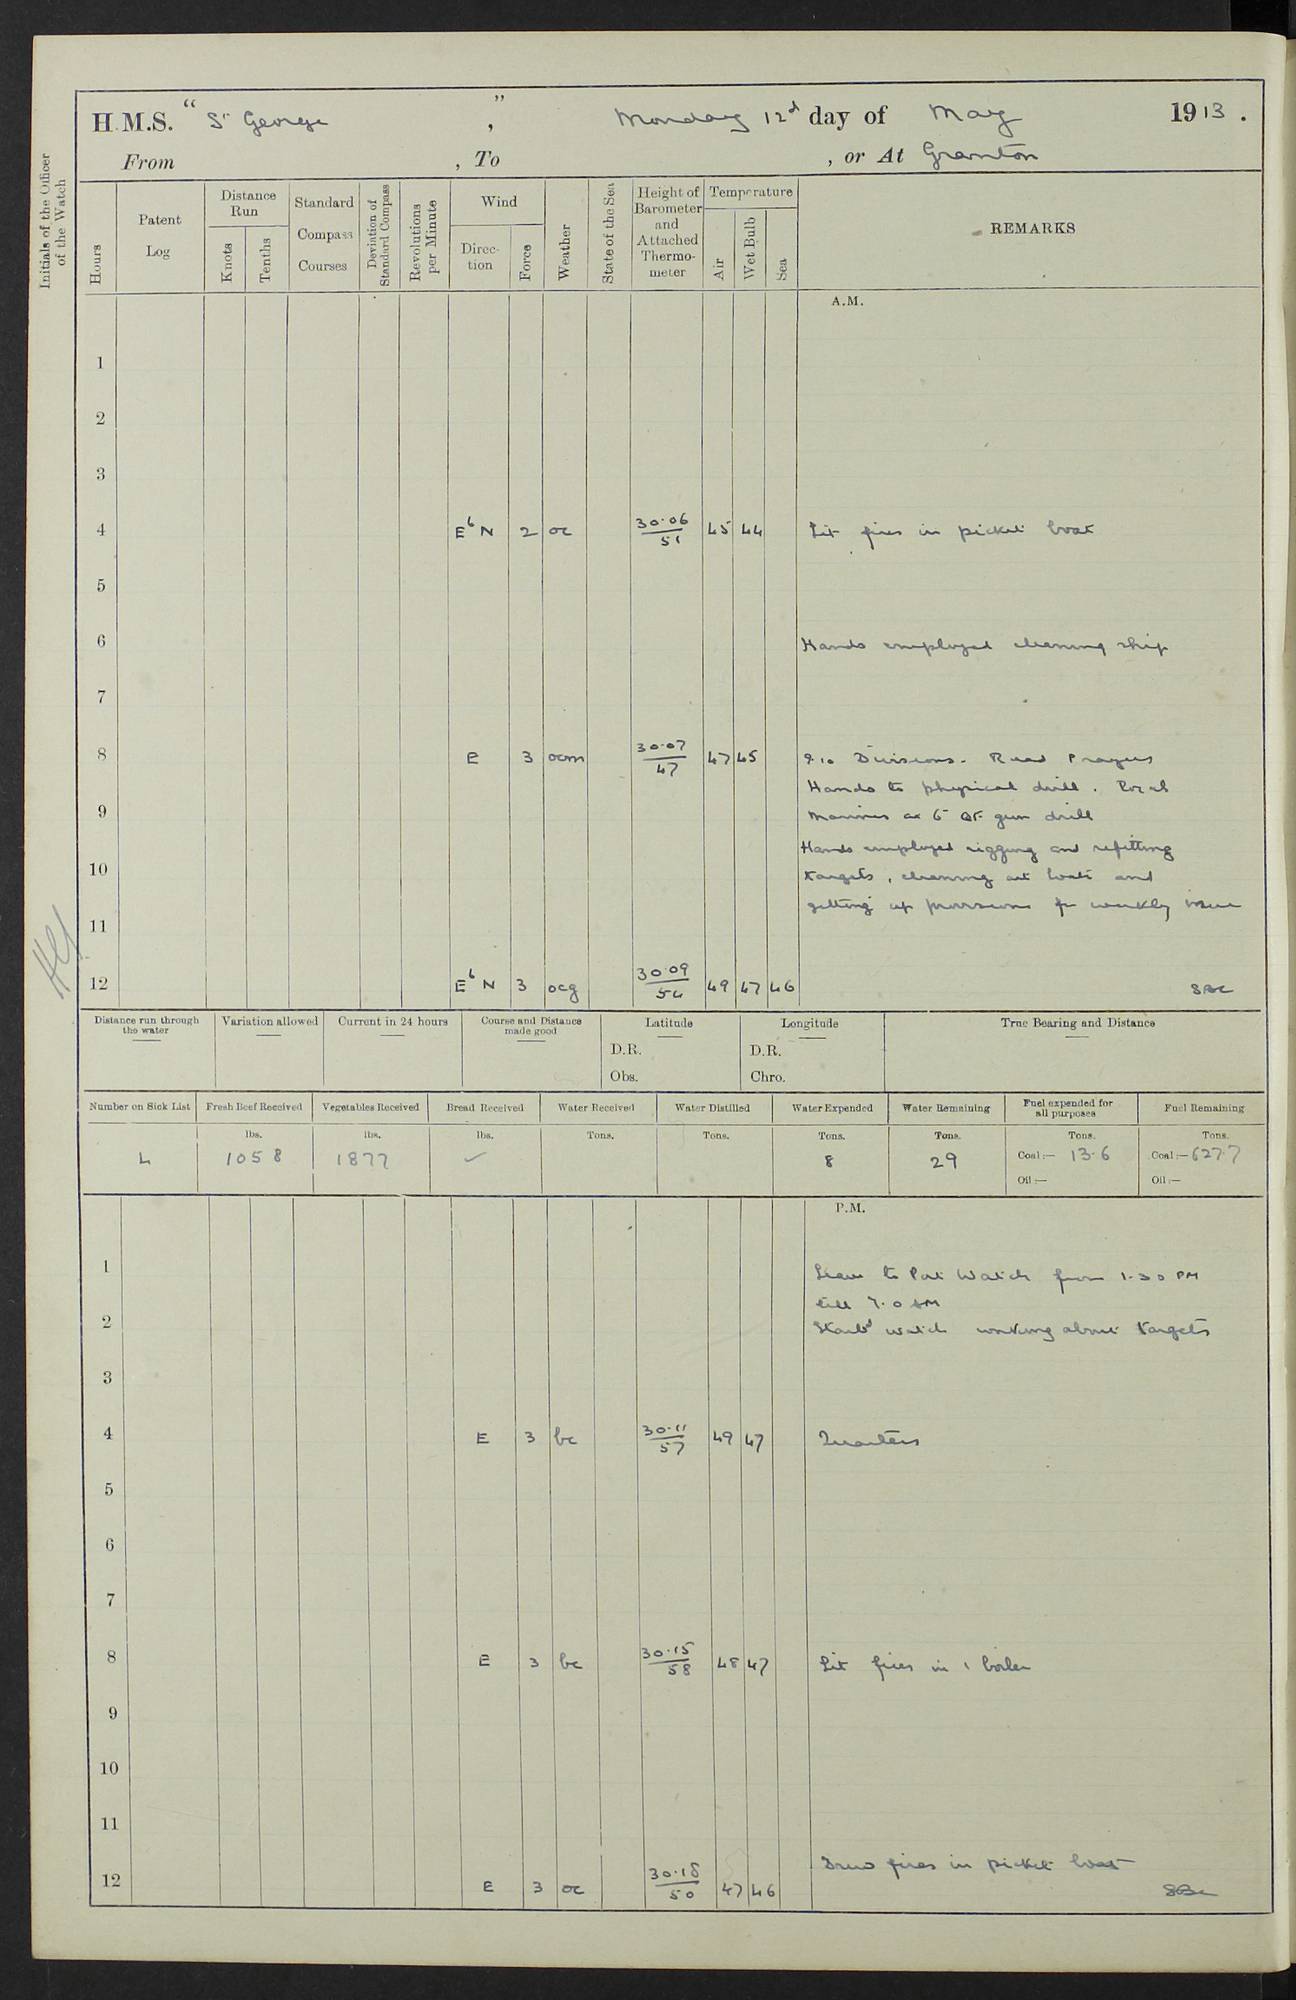 H.M.S. "St George", Monday 12th day of May 1913.
From , To , or At Granton
Initials of the Officer of the Watch
Hours
Patent Log
Distance Run
Knots
Tenths
Standard Compass Courses
Deviation of Standard Compass
Revolutions per Minute
Wind
Direction
Force
Weather
State of the Sea
Height of Barometer and Attached Thermometer
Temperature
Air
Wet Bulb
Sea
REMARKS
A.M.
1
2
3
4 E b N 2 oc 30.06/51 45 44 Lit fires in picket boat
5
6 Hands employed cleaning ship
7
8 E 3 ocm 30.07/47 47 45 9.10 Divisions. Read Prayers
Hands to physical drill. Royal
9 Marines at 6" QF gun drill
Hands employed rigging and refitting
10 targets, cleaning out boats and
getting up provisions for weekly issue
11
12 E b N 3 ocg 30.09/54 49 47 46
Distance run through the water
Variation allowed
Current in 24 hours
Course and Distance made good
Latitude
D.R.
Obs.
Longitude
D.R.
Chro.
True Bearing and Distance
Number on Sick List
Fresh Beef Received
Vegetables Received
Bread Received
Water Received
Water Distilled
Water Expended
Water Remaining
Fuel expended for all purposes
Fuel Remaining
lbs. lbs. lbs. Tons. Tons. Tons. Tons. Tons. Tons.
4 1058 1877 ✓ 8 29 Coal:— 13.6 Coal:— 627.7
Oil:— Oil:—
P.M.
1 Leave to Port Watch from 1.30 PM
till 7.0 AM
2 Starbd watch working about targets
3
4 E 3 bc 30.11/57 49 47 Quarters
5
6
7
8 E 3 bc 30.15/58 48 47 Lit fires in 1 boiler
9
10
11
Drew fires in picket boat
12 E 3 oc 30.18/50 47 46